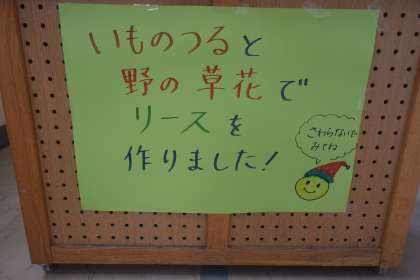 いものつると
野の草花で
リースを
作りました!
さわらないで
みてね